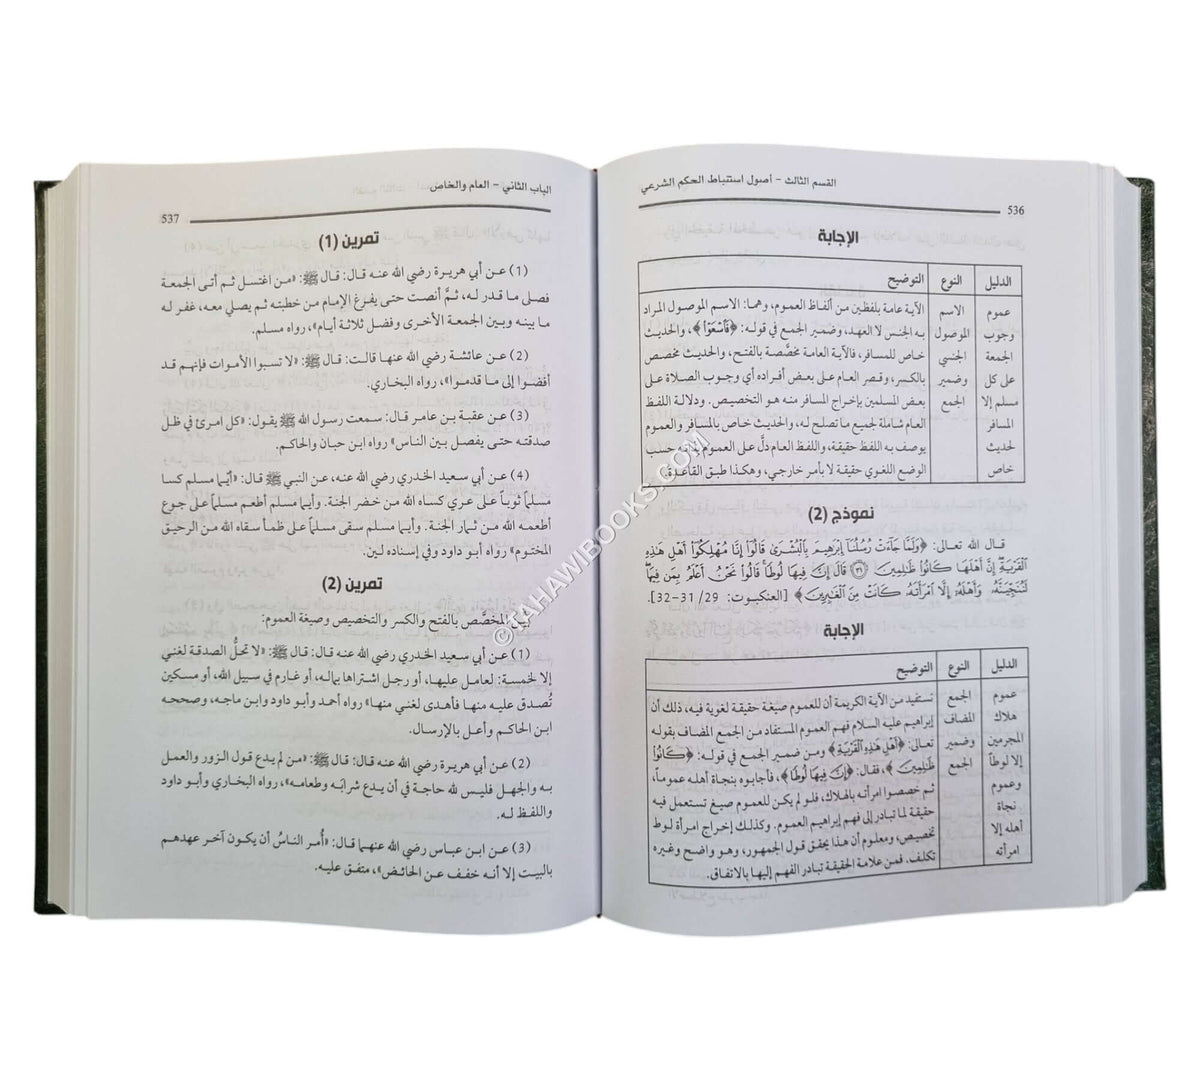 القسم الثالث – أصول استنباط الحكم الشرعي
536
الإجابة
الدليل النوع التوضيح
عموم الاسم الآية عامة بلفظين من ألفاظ العموم، وهما: الاسم الموصول المراد
وجوب الموصول به الجنس لا العهد، وضمير الجمع في قوله: ﴿فَاسْعَوْا﴾، والحديث
الجمعة الجنسي خاص للمسافر، فالآية العامة مخصَّصة بالفتح، والحديث مخصص
على كل وضمير بالكسر، وقصر العام على بعض أفراده أي وجوب الصلاة على
مسلم إلا الجمع بعض المسلمين بإخراج المسافر منه هو التخصيص. ودلالة اللفظ
المسافر العام شاملة لجميع ما تصلح له، والحديث خاص بالمسافر والعموم
لحديث يوصف به اللفظ حقيقة، واللفظ العام دلَّ على العموم حسب
خاص الوضع اللغوي حقيقة لا بأمر خارجي، وهكذا طبق القاعدة.
نموذج (2)
قال الله تعالى: ﴿وَلَمَّا جَاءَتْ رُسُلُنَا إِبْرَاهِيمَ بِالْبُشْرَىٰ قَالُوا إِنَّا مُهْلِكُو أَهْلِ هَٰذِهِ
الْقَرْيَةِ إِنَّ أَهْلَهَا كَانُوا ظَالِمِينَ ۝٣١ قَالَ إِنَّ فِيهَا لُوطًا قَالُوا نَحْنُ أَعْلَمُ بِمَن فِيهَا
لَنُنَجِّيَنَّهُ وَأَهْلَهُ إِلَّا امْرَأَتَهُ كَانَتْ مِنَ الْغَابِرِينَ﴾ [العنكبوت: 29/ 31-32].
الإجابة
الدليل النوع التوضيح
عموم الجمع تستفيد من الآية الكريمة أن للعموم صيغة حقيقة لغوية فيه، ذلك أن
هلاك المضاف إبراهيم عليه السلام فهم العموم المستفاد من الجمع المضاف بقوله
المجرمين وضمير تعالى: ﴿أَهْلِ هَٰذِهِ الْقَرْيَةِ﴾ ومن ضمير الجمع في قوله: ﴿كَانُوا
إلا لوطاً الجمع ظَالِمِينَ﴾، فقال: ﴿إِنَّ فِيهَا لُوطًا﴾، فأجابوه بنجاة أهله عموماً،
وعموم ثم خصصوا امرأته بالهلاك، فلو لم يكن للعموم صيغ تستعمل فيه
نجاة حقيقة لما تبادر إلى فهم إبراهيم العموم. وكذلك إخراج امرأة لوط
أهله إلا تخصيص، ومعلوم أن هذا يحقق قول الجمهور، وهو واضح وغيره
امرأته تكلف. فمن علامة الحقيقة تبادر الفهم إليها بالاتفاق.
الباب الثاني – العام والخاص
537
تمرين (1)
(1) عن أبي هريرة رضي الله عنه قال: قال ﷺ: «من اغتسل ثم أتى الجمعة
فصلى ما قدر له، ثمَّ أنصت حتى يفرغ الإمام من خطبته ثم يصلي معه، غفر له
ما بينه وبين الجمعة الأخرى وفضل ثلاثة أيام»، رواه مسلم.
(2) عن عائشة رضي الله عنها قالت: قال ﷺ: «لا تسبوا الأموات فإنهم قد
أفضوا إلى ما قدموا»، رواه البخاري.
(3) عن عقبة بن عامر قال: سمعت رسول الله ﷺ يقول: «كل امرئ في ظل
صدقته حتى يفصل بين الناس» رواه ابن حبان والحاكم.
(4) عن أبي سعيد الخدري رضي الله عنه، عن النبي ﷺ قال: «أيّما مسلم كسا
مسلماً ثوباً على عري كساه الله من خضر الجنة. وأيما مسلم أطعم مسلماً على جوع
أطعمه الله من ثمار الجنة. وأيما مسلم سقى مسلماً على ظمأ سقاه الله من الرحيق
المختوم» رواه أبو داود وفي إسناده لين.
تمرين (2)
المخصَّص بالفتح والكسر والتخصيص وصيغة العموم:
(1) عن أبي سعيد الخدري رضي الله عنه قال: قال ﷺ: «لا تحلُّ الصدقة لغني
إلا لخمسة: لعامل عليها، أو رجل اشتراها بماله، أو غارم في سبيل الله، أو مسكين
تُصدق عليه منها فأهدى لغني منها» رواه أحمد وأبو داود وابن ماجه، وصححه
ابن الحاكم وأعل بالإرسال.
(2) عن أبي هريرة رضي الله عنه قال: قال ﷺ: «من لم يدع قول الزور والعمل
به والجهل فليس لله حاجة في أن يدع شرابَه وطعامه»، رواه البخاري وأبو داود
واللفظ له.
(3) عن ابن عباس رضي الله عنهما قال: «أُمر الناسُ أن يكون آخر عهدهم
بالبيت إلا أنه خفف عن الحائض»، متفق عليه.
©TAHAWIBOOKS.COM